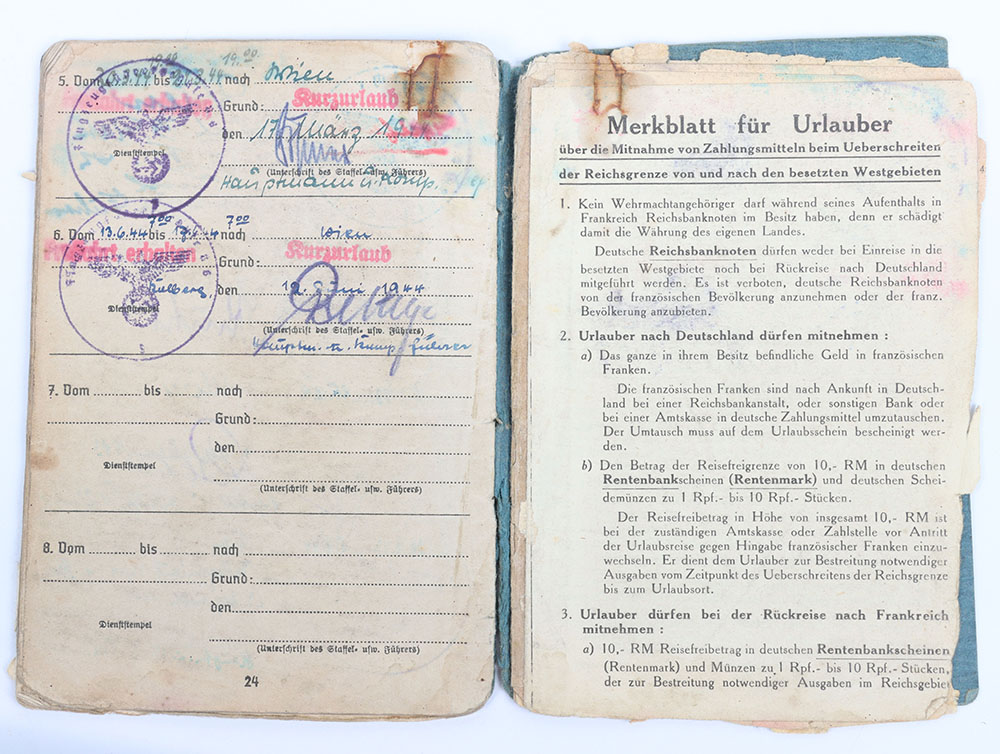 5. Vom bis nach Wien
Grund: Kurzurlaub
den 17. März 1944
Dienststempel
(Unterschrift des Staffel- usw. Führers)
Hauptmann u. Komp.
6. Vom 13.6.44 bis nach Wien
7⁰⁰ 7⁰⁰
erhalten
Grund: Kurzurlaub
den 12. Juni 1944
Dienststempel
(Unterschrift des Staffel- usw. Führers)
Hauptm. u. Komp. Führer
7. Vom bis nach
Grund:
den
Dienststempel
(Unterschrift des Staffel- usw. Führers)
8. Vom bis nach
Grund:
den
Dienststempel
(Unterschrift des Staffel- usw. Führers)
24
Merkblatt für Urlauber
über die Mitnahme von Zahlungsmitteln beim Ueberschreiten
der Reichsgrenze von und nach den besetzten Westgebieten
1. Kein Wehrmachtangehöriger darf während seines Aufenthalts in
Frankreich Reichsbanknoten im Besitz haben, denn er schädigt
damit die Währung des eigenen Landes.
Deutsche Reichsbanknoten dürfen weder bei Einreise in die
besetzten Westgebiete noch bei Rückreise nach Deutschland
mitgeführt werden. Es ist verboten, deutsche Reichsbanknoten
von der französischen Bevölkerung anzunehmen oder der franz.
Bevölkerung anzubieten.
2. Urlauber nach Deutschland dürfen mitnehmen :
a) Das ganze in ihrem Besitz befindliche Geld in französischen
Franken.
Die französischen Franken sind nach Ankunft in Deutsch-
land bei einer Reichsbankanstalt, oder sonstigen Bank oder
bei einer Amtskasse in deutsche Zahlungsmittel umzutauschen.
Der Umtausch muss auf dem Urlaubsschein bescheinigt wer-
den.
b) Den Betrag der Reisefreigrenze von 10,- RM in deutschen
Rentenbankscheinen (Rentenmark) und deutschen Schei-
demünzen zu 1 Rpf.- bis 10 Rpf.- Stücken.
Der Reisefreibetrag in Höhe von insgesamt 10,- RM ist
bei der zuständigen Amtskasse oder Zahlstelle vor Antritt
der Urlaubsreise gegen Hingabe französischer Franken einzu-
wechseln. Er dient dem Urlauber zur Bestreitung notwendiger
Ausgaben vom Zeitpunkt des Ueberschreitens der Reichsgrenze
bis zum Urlaubsort.
3. Urlauber dürfen bei der Rückreise nach Frankreich
mitnehmen :
a) 10,- RM Reisefreibetrag in deutschen Rentenbankscheinen
(Rentenmark) und Münzen zu 1 Rpf.- bis 10 Rpf.- Stücken,
der zur Bestreitung notwendiger Ausgaben im Reichsgebie